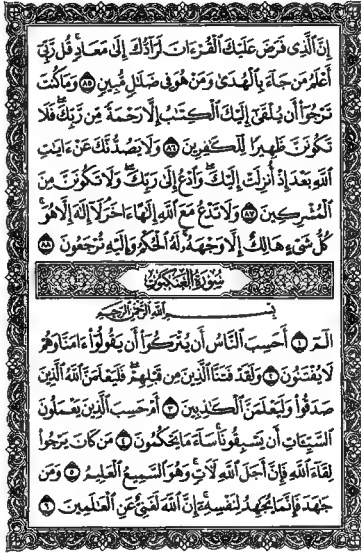 إِنَّ ٱلَّذِى فَرَضَ عَلَيْكَ ٱلْقُرْءَانَ لَرَآدُّكَ إِلَىٰ مَعَادٍۚ قُل رَّبِّىٓ
أَعْلَمُ مَن جَآءَ بِٱلْهُدَىٰ وَمَنْ هُوَ فِى ضَلَٰلٍ مُّبِينٍ ٨٥ وَمَا كُنتَ
تَرْجُوٓا۟ أَن يُلْقَىٰٓ إِلَيْكَ ٱلْكِتَٰبُ إِلَّا رَحْمَةً مِّن رَّبِّكَۖ فَلَا
تَكُونَنَّ ظَهِيرًا لِّلْكَٰفِرِينَ ٨٦ وَلَا يَصُدُّنَّكَ عَنْ ءَايَٰتِ
ٱللَّهِ بَعْدَ إِذْ أُنزِلَتْ إِلَيْكَۖ وَٱدْعُ إِلَىٰ رَبِّكَۖ وَلَا تَكُونَنَّ مِنَ
ٱلْمُشْرِكِينَ ٨٧ وَلَا تَدْعُ مَعَ ٱللَّهِ إِلَٰهًا ءَاخَرَۘ لَآ إِلَٰهَ إِلَّا هُوَۚ
كُلُّ شَىْءٍ هَالِكٌ إِلَّا وَجْهَهُۥۚ لَهُ ٱلْحُكْمُ وَإِلَيْهِ تُرْجَعُونَ ٨٨
سُورَةُ الْعَنْكَبُوتِ
بِسْمِ ٱللَّهِ ٱلرَّحْمَٰنِ ٱلرَّحِيمِ
الٓمٓ ١ أَحَسِبَ ٱلنَّاسُ أَن يُتْرَكُوٓا۟ أَن يَقُولُوٓا۟ ءَامَنَّا وَهُمْ
لَا يُفْتَنُونَ ٢ وَلَقَدْ فَتَنَّا ٱلَّذِينَ مِن قَبْلِهِمْۖ فَلَيَعْلَمَنَّ ٱللَّهُ ٱلَّذِينَ
صَدَقُوا۟ وَلَيَعْلَمَنَّ ٱلْكَٰذِبِينَ ٣ أَمْ حَسِبَ ٱلَّذِينَ يَعْمَلُونَ
ٱلسَّيِّـَٔاتِ أَن يَسْبِقُونَاۚ سَآءَ مَا يَحْكُمُونَ ٤ مَن كَانَ يَرْجُوا۟
لِقَآءَ ٱللَّهِ فَإِنَّ أَجَلَ ٱللَّهِ لَـَٔاتٍۚ وَهُوَ ٱلسَّمِيعُ ٱلْعَلِيمُ ٥ وَمَن
جَٰهَدَ فَإِنَّمَا يُجَٰهِدُ لِنَفْسِهِۦٓۚ إِنَّ ٱللَّهَ لَغَنِىٌّ عَنِ ٱلْعَٰلَمِينَ ٦